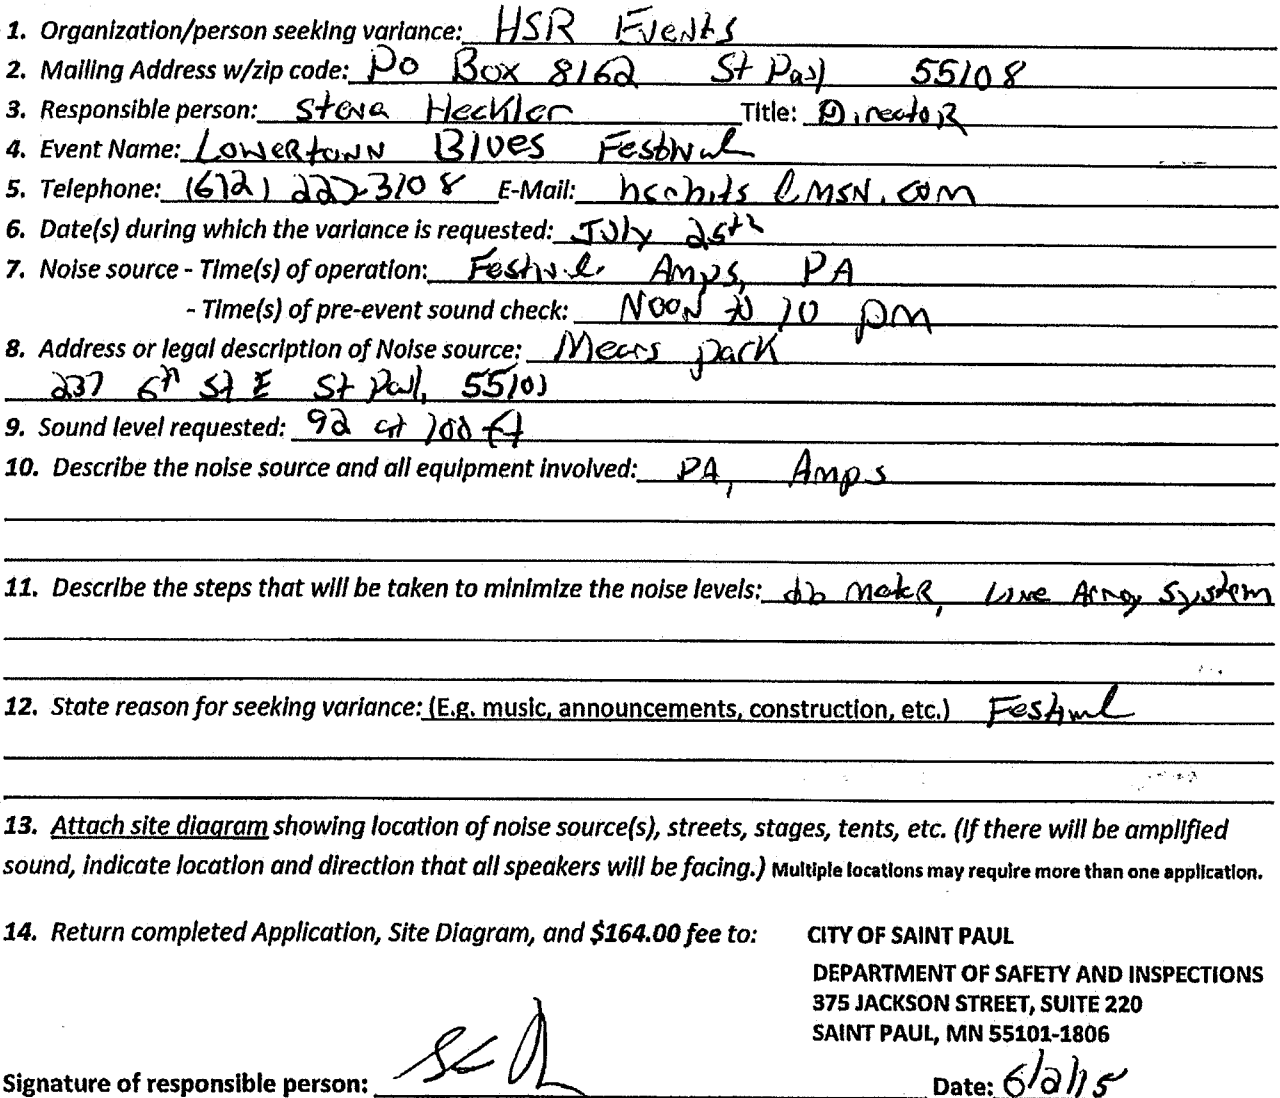 1. Organization/person seeking variance: HSR Events
2. Mailing Address w/zip code: PO Box 8162 St Paul 55108
3. Responsible person: Steve Heckler Title: Director
4. Event Name: Lowertown Blues Festival
5. Telephone: (612) 227-3108 E-Mail: @MSN.com
6. Date(s) during which the variance is requested: July 25th
7. Noise source - Time(s) of operation: Festival Amps, PA
- Time(s) of pre-event sound check: NOON to 10 pm
8. Address or legal description of Noise source: Mears park
237 6th St E St Paul, 55101
9. Sound level requested: 92 at 100 ft
10. Describe the noise source and all equipment involved: PA, Amps
11. Describe the steps that will be taken to minimize the noise levels: db meter, Line Array System
12. State reason for seeking variance: (E.g. music, announcements, construction, etc.) Festival
13. Attach site diagram showing location of noise source(s), streets, stages, tents, etc. (If there will be amplified
sound, indicate location and direction that all speakers will be facing.) Multiple locations may require more than one application.
14. Return completed Application, Site Diagram, and $164.00 fee to: CITY OF SAINT PAUL
DEPARTMENT OF SAFETY AND INSPECTIONS
375 JACKSON STREET, SUITE 220
SAINT PAUL, MN 55101-1806
Signature of responsible person: Date: 6/2/15